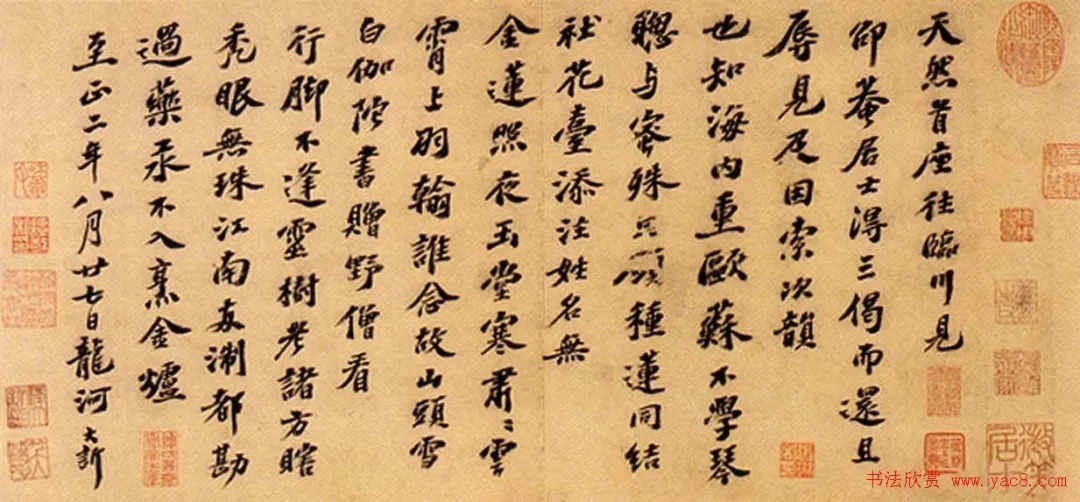 天然首座往臨川見
邵菴居士得三偈而還且
辱見及因索次韻
也知海内重歐蘇不學琴
聰与蜜殊種蓮同結
社花臺添注姓名無
金蓮照夜玉堂寒肅〻雲
霄上羽翰誰念故山頭雪
白伽陁書贈野僧看
行脚不逢靈樹老諸方瞎
禿眼無珠江南淛都勘
過藥汞不入烹金爐
至正二年八月廿七日龍河大訢
书法欣赏 www.yac8.com